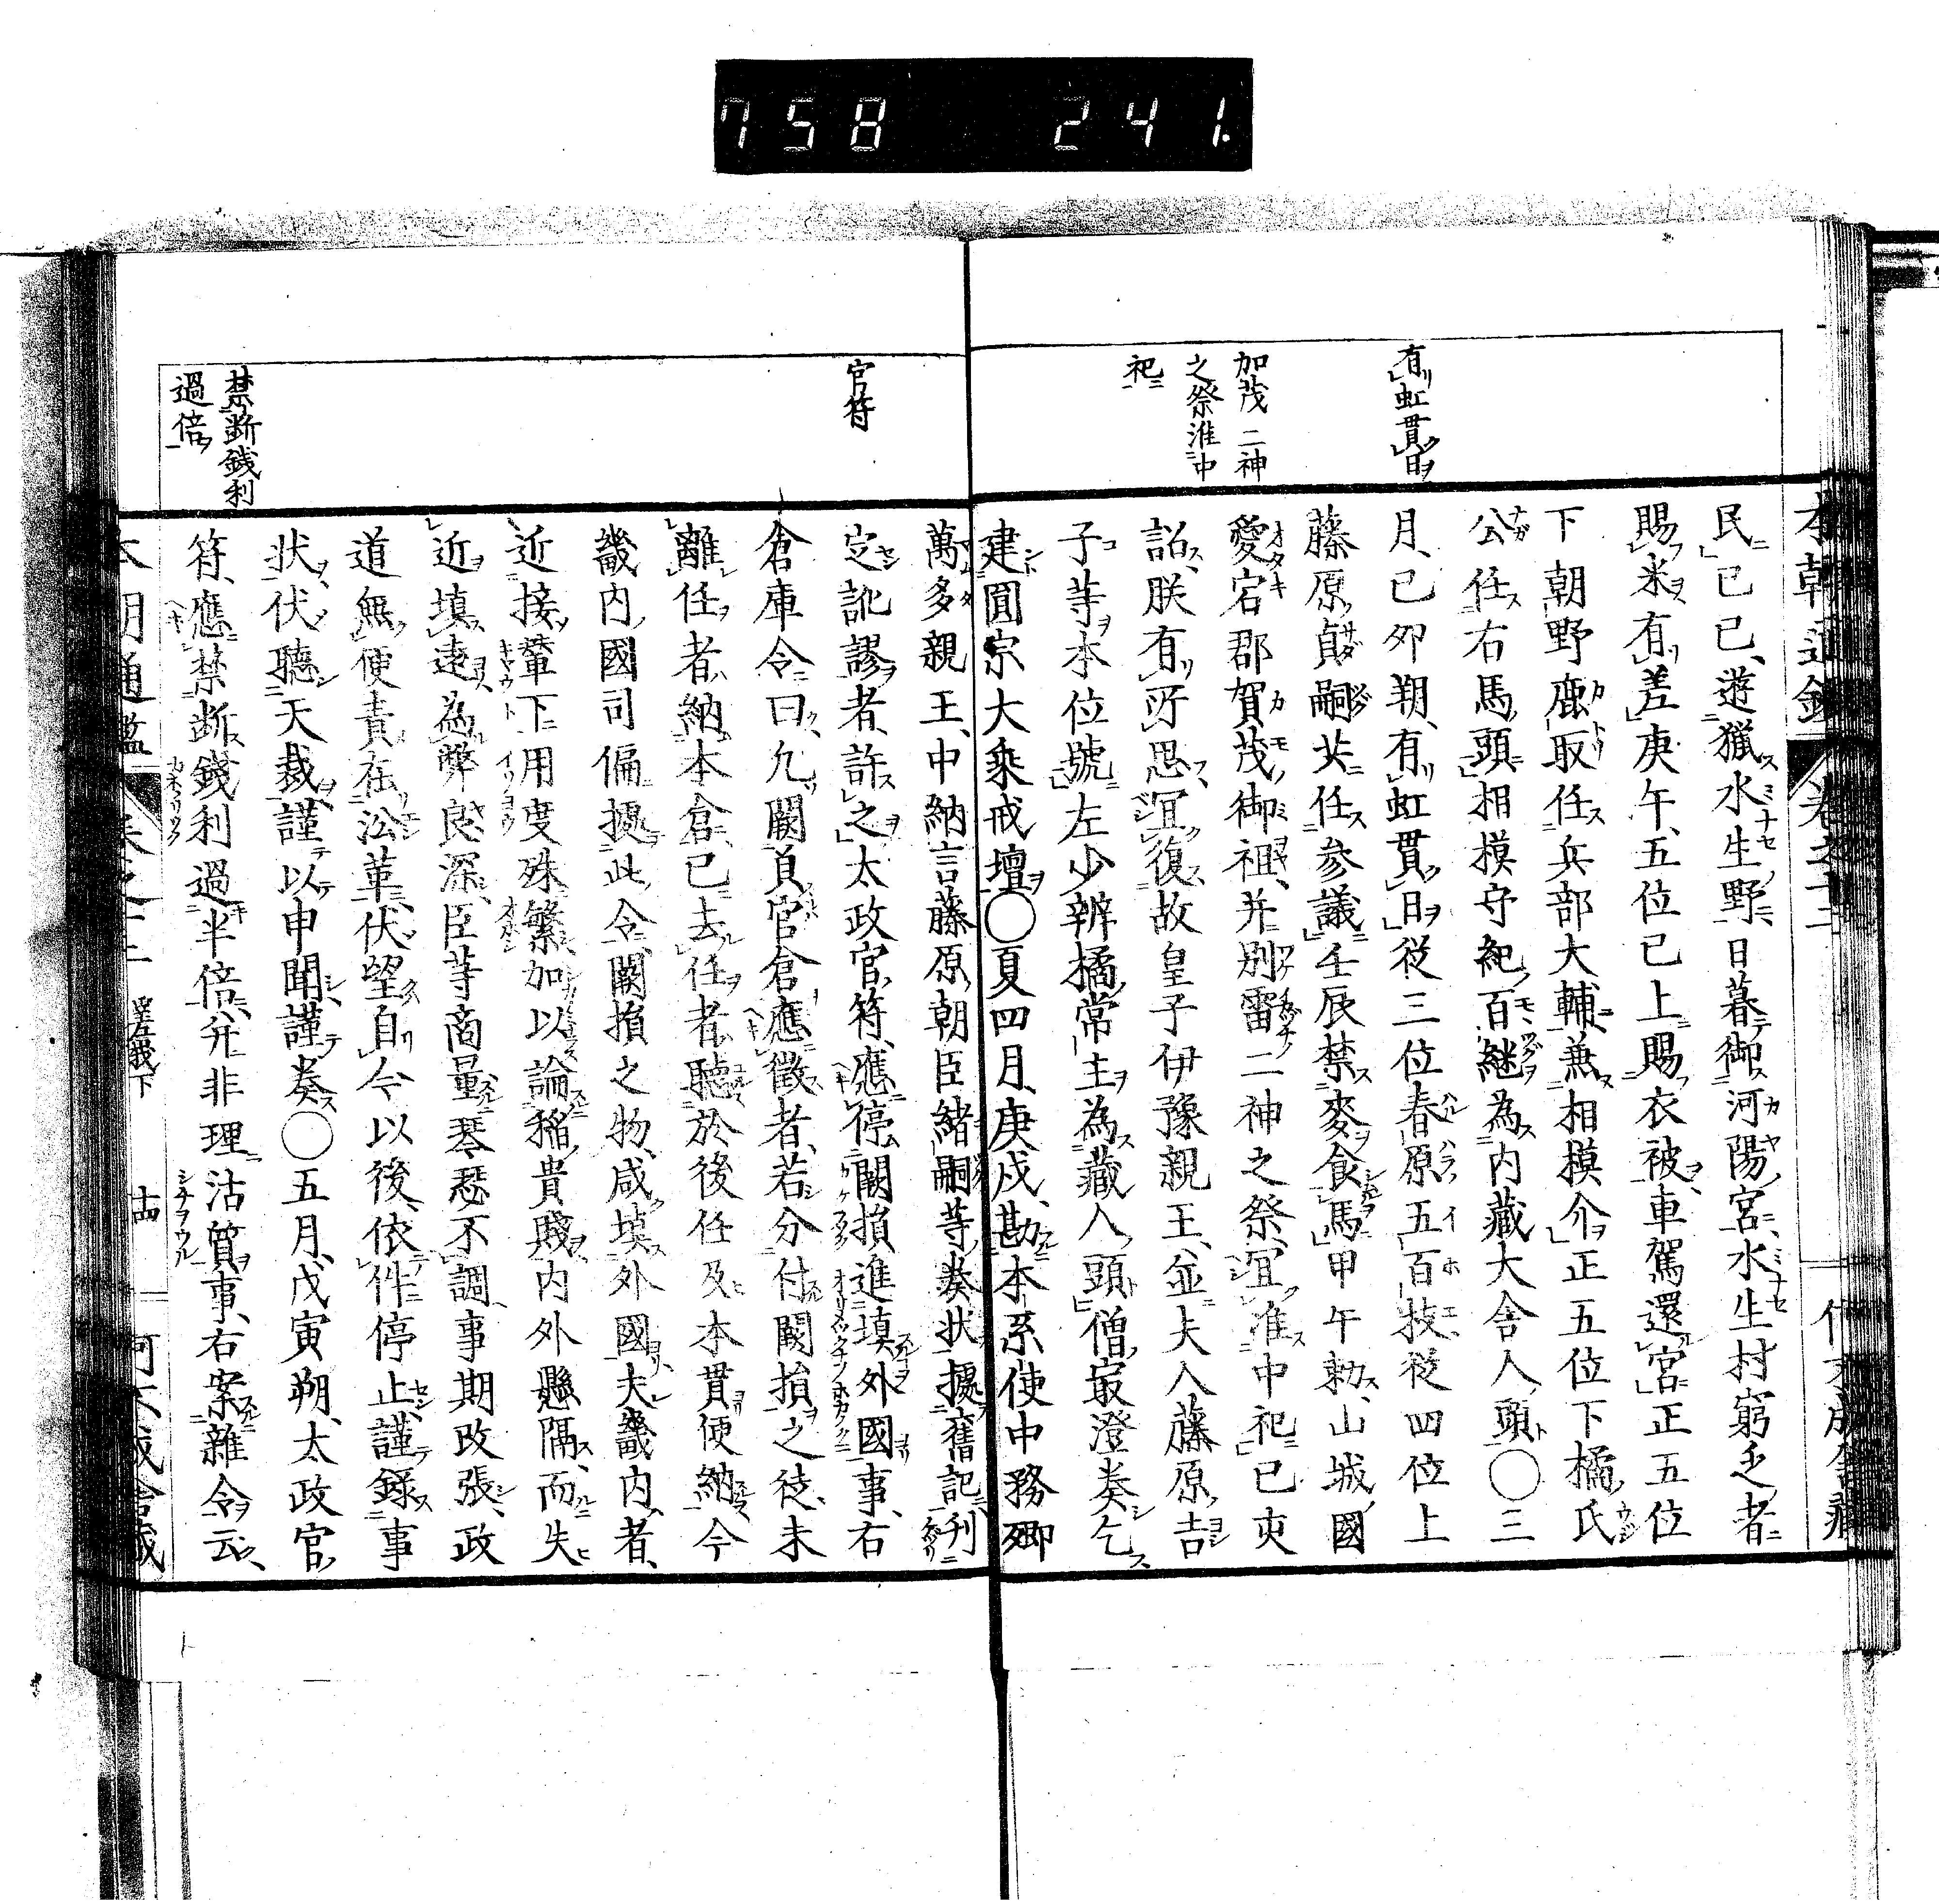 758 241.
有虹貫日
加茂二神
之祭准中
祀
民己巳遊獵水生野日暮御河陽宮水生村窮乏者
賜米有差庚午五位已上賜衣被車駕還宮正五位
下朝野鹿取任兵部大輔兼相摸介正五位下橘氏
公任右馬頭相摸守紀百継為内藏大舍人頭〇三
月己夘朔有虹貫日從三位春原五百枝從四位上
藤原貞嗣共任参議壬辰禁麥飼馬甲午勅山城國
愛宕郡賀茂御祖并別雷二神之祭冝准中祀己亥
詔朕有所思冝復故皇子伊豫親王並夫人藤原吉
子等本位號左少辨橘常主為藏人頭僧最澄奏乞
建圓宗大乗戒壇〇夏四月庚戌勘本系使中務卿
官符
禁断銭利
過倍
萬多親王中納言藤原朝臣緒嗣等奏状據舊記刊
定訛謬者許之太政官符應停闕損進填外國事右
倉庫令曰凡闕負官倉應徴者若分付闕損之徒未
離任者納本倉已去任者聴於後任及本貫便納今
畿内國司偏據此令闕損之物咸填外國夫畿内者
近接輦下用度殊繁加以論稲貴賤内外懸隔而失
近填遠為弊良深臣等商量琴瑟不調事期改張政
道無便責在沿革伏望自今以後依件停止謹錄事
状伏聴天裁謹以申聞謹奏〇五月戊寅朔太政官
符應禁断錢利過半倍并非理沽質事右案雜令云